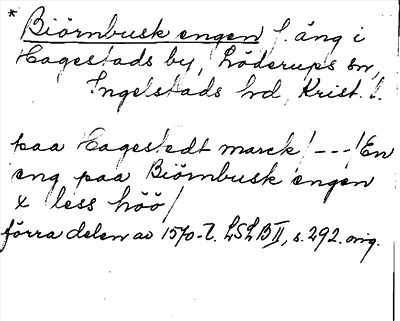 * Biörnbusk engen f. äng i
Hagestads by, Löderups sn,
Ingelstads hd, Krist. l.
paa Hagestedt marck /---/ En
eng paa Biörnbusk engen
x less höö /
förra delen av 1570-t. LSLB II, s. 292. orig.